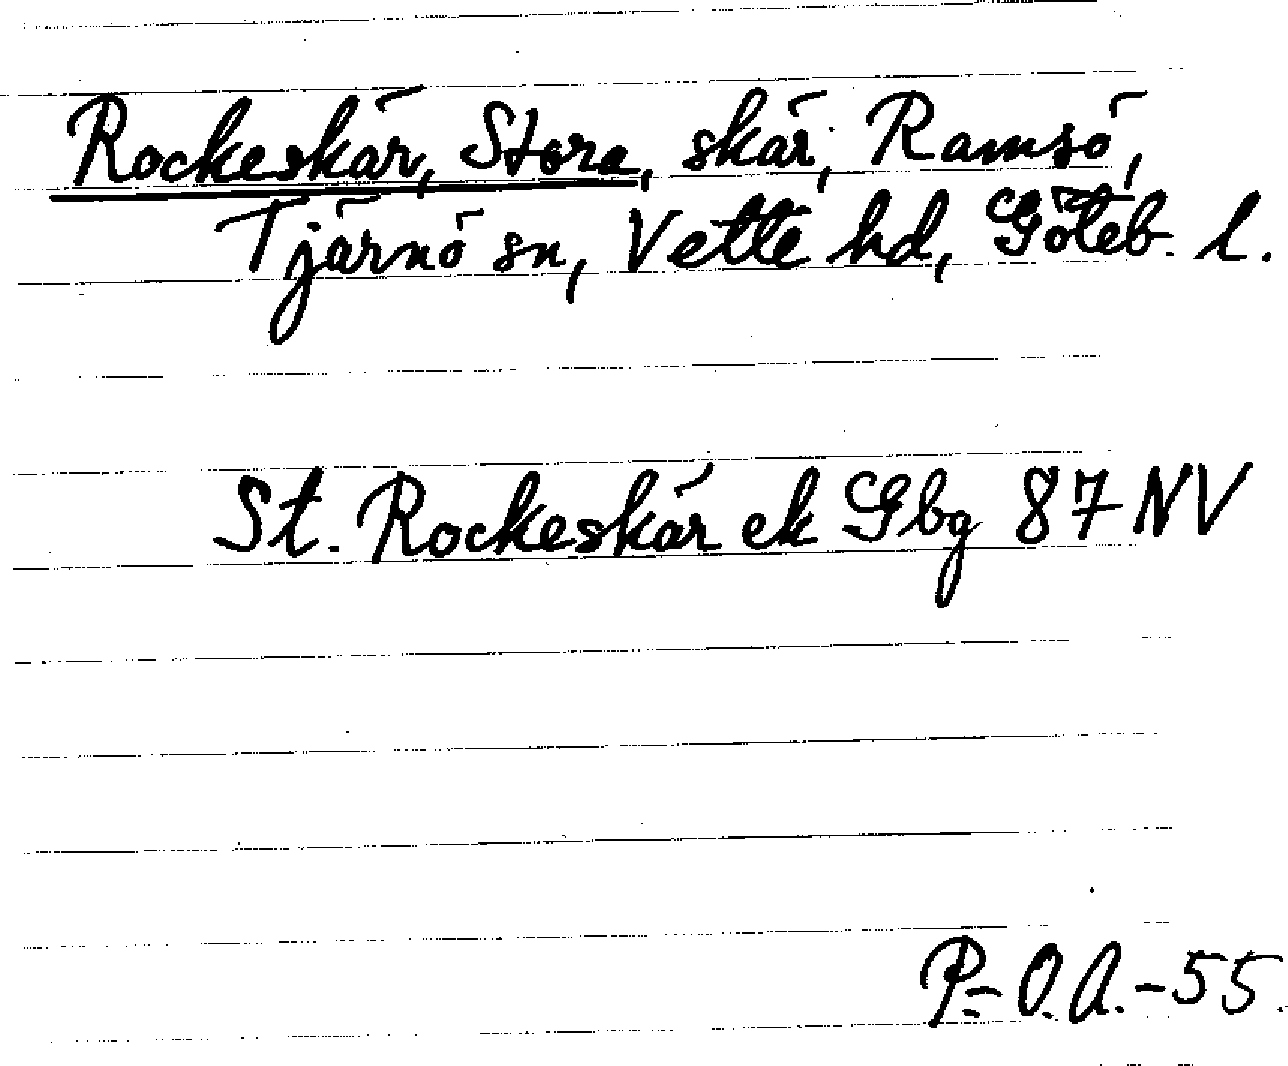 Rockeskär, Stora, skär, Ramsö,
Tjärnö sn, Vette hd, Göteb. l.
St. Rockeskär ek Gbg 87 NV
P-O.A.-55.